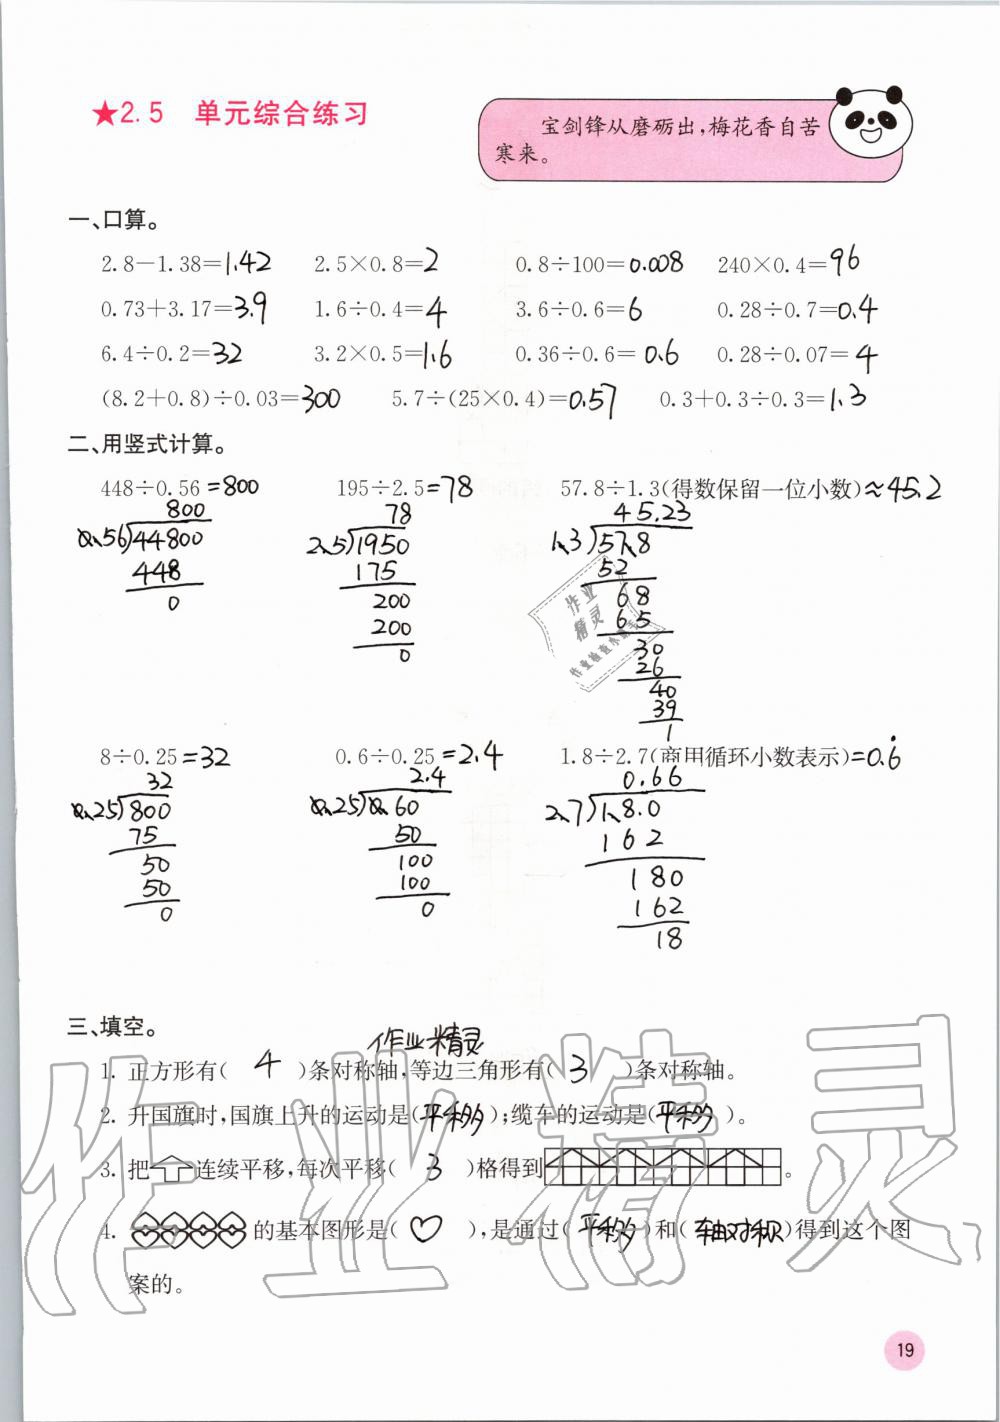 ★2.5 单元综合练习
宝剑锋从磨砺出,梅花香自苦
寒来。
一、口算。
2.8-1.38=1.42 2.5×0.8=2 0.8÷100=0.008 240×0.4=96
0.73+3.17=3.9 1.6÷0.4=4 3.6÷0.6=6 0.28÷0.7=0.4
6.4÷0.2=32 3.2×0.5=1.6 0.36÷0.6=0.6 0.28÷0.07=4
(8.2+0.8)÷0.03=300 5.7÷(25×0.4)=0.57 0.3+0.3÷0.3=1.3
二、用竖式计算。
448÷0.56=800 195÷2.5=78 57.8÷1.3(得数保留一位小数)≈45.2
800 78 45.23
0.56)44800 2.5)1950 1.3)57.8
448 175 52
0 200 68
200 65
0 30
26
40
39
1
8÷0.25=32 0.6÷0.25=2.4 1.8÷2.7(商用循环小数表示)=0.6̇
32 2.4 0.66
0.25)800 0.25)0.60 2.7)1.8.0
75 50 162
50 100 180
50 100 162
0 0 18
作业
精灵
三、填空。
作业精灵
1. 正方形有( 4 )条对称轴,等边三角形有( 3 )条对称轴。
2. 升国旗时,国旗上升的运动是(平移);缆车的运动是(平移)。
3. 把连续平移,每次平移( 3 )格得到。
4. 的基本图形是( ♡ ),是通过(平移)和(轴对称)得到这个图
案的。
作业精灵
19